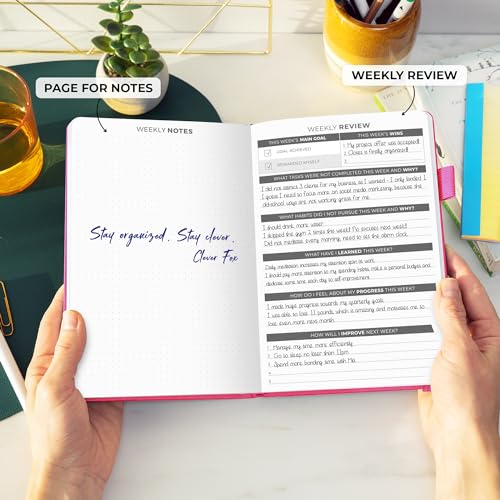 PAGE FOR NOTES
WEEKLY REVIEW
WEEKLY NOTES
Stay organized. Stay clever.
Clever Fox
WEEKLY REVIEW
THIS WEEK'S MAIN GOAL
GOAL ACHIEVED
REWARDED MYSELF
THIS WEEK'S WINS
1. My project offer was accepted!
2. Closet is finally organized!
3.
WHAT TASKS WERE NOT COMPLETED THIS WEEK AND WHY?
I did not attract 3 clients for my business as I wanted - I only landed 1.
I guess I need to focus more on social media marketing, because the
old-school ways are not working great for me.
WHAT HABITS DID I NOT PURSUE THIS WEEK AND WHY?
I should drink more water.
I skipped the gym 2 times this week! No excuses next week!
Did not meditate every morning, need to set the alarm clock.
WHAT HAVE I LEARNED THIS WEEK?
Daily meditation increases my attention span at work.
I should pay more attention to my spending habits, make a personal budget and
dedicate some time each day to self-improvement.
HOW DO I FEEL ABOUT MY PROGRESS THIS WEEK?
I made huge progress towards my quarterly goals.
I was able to lose 1.1 pounds, which is amazing and motivates me to
lose even more next month.
HOW WILL I IMPROVE NEXT WEEK?
1. Manage my time more efficiently.
2. Go to sleep no later than 11pm.
3. Spend more bonding time with Mia.